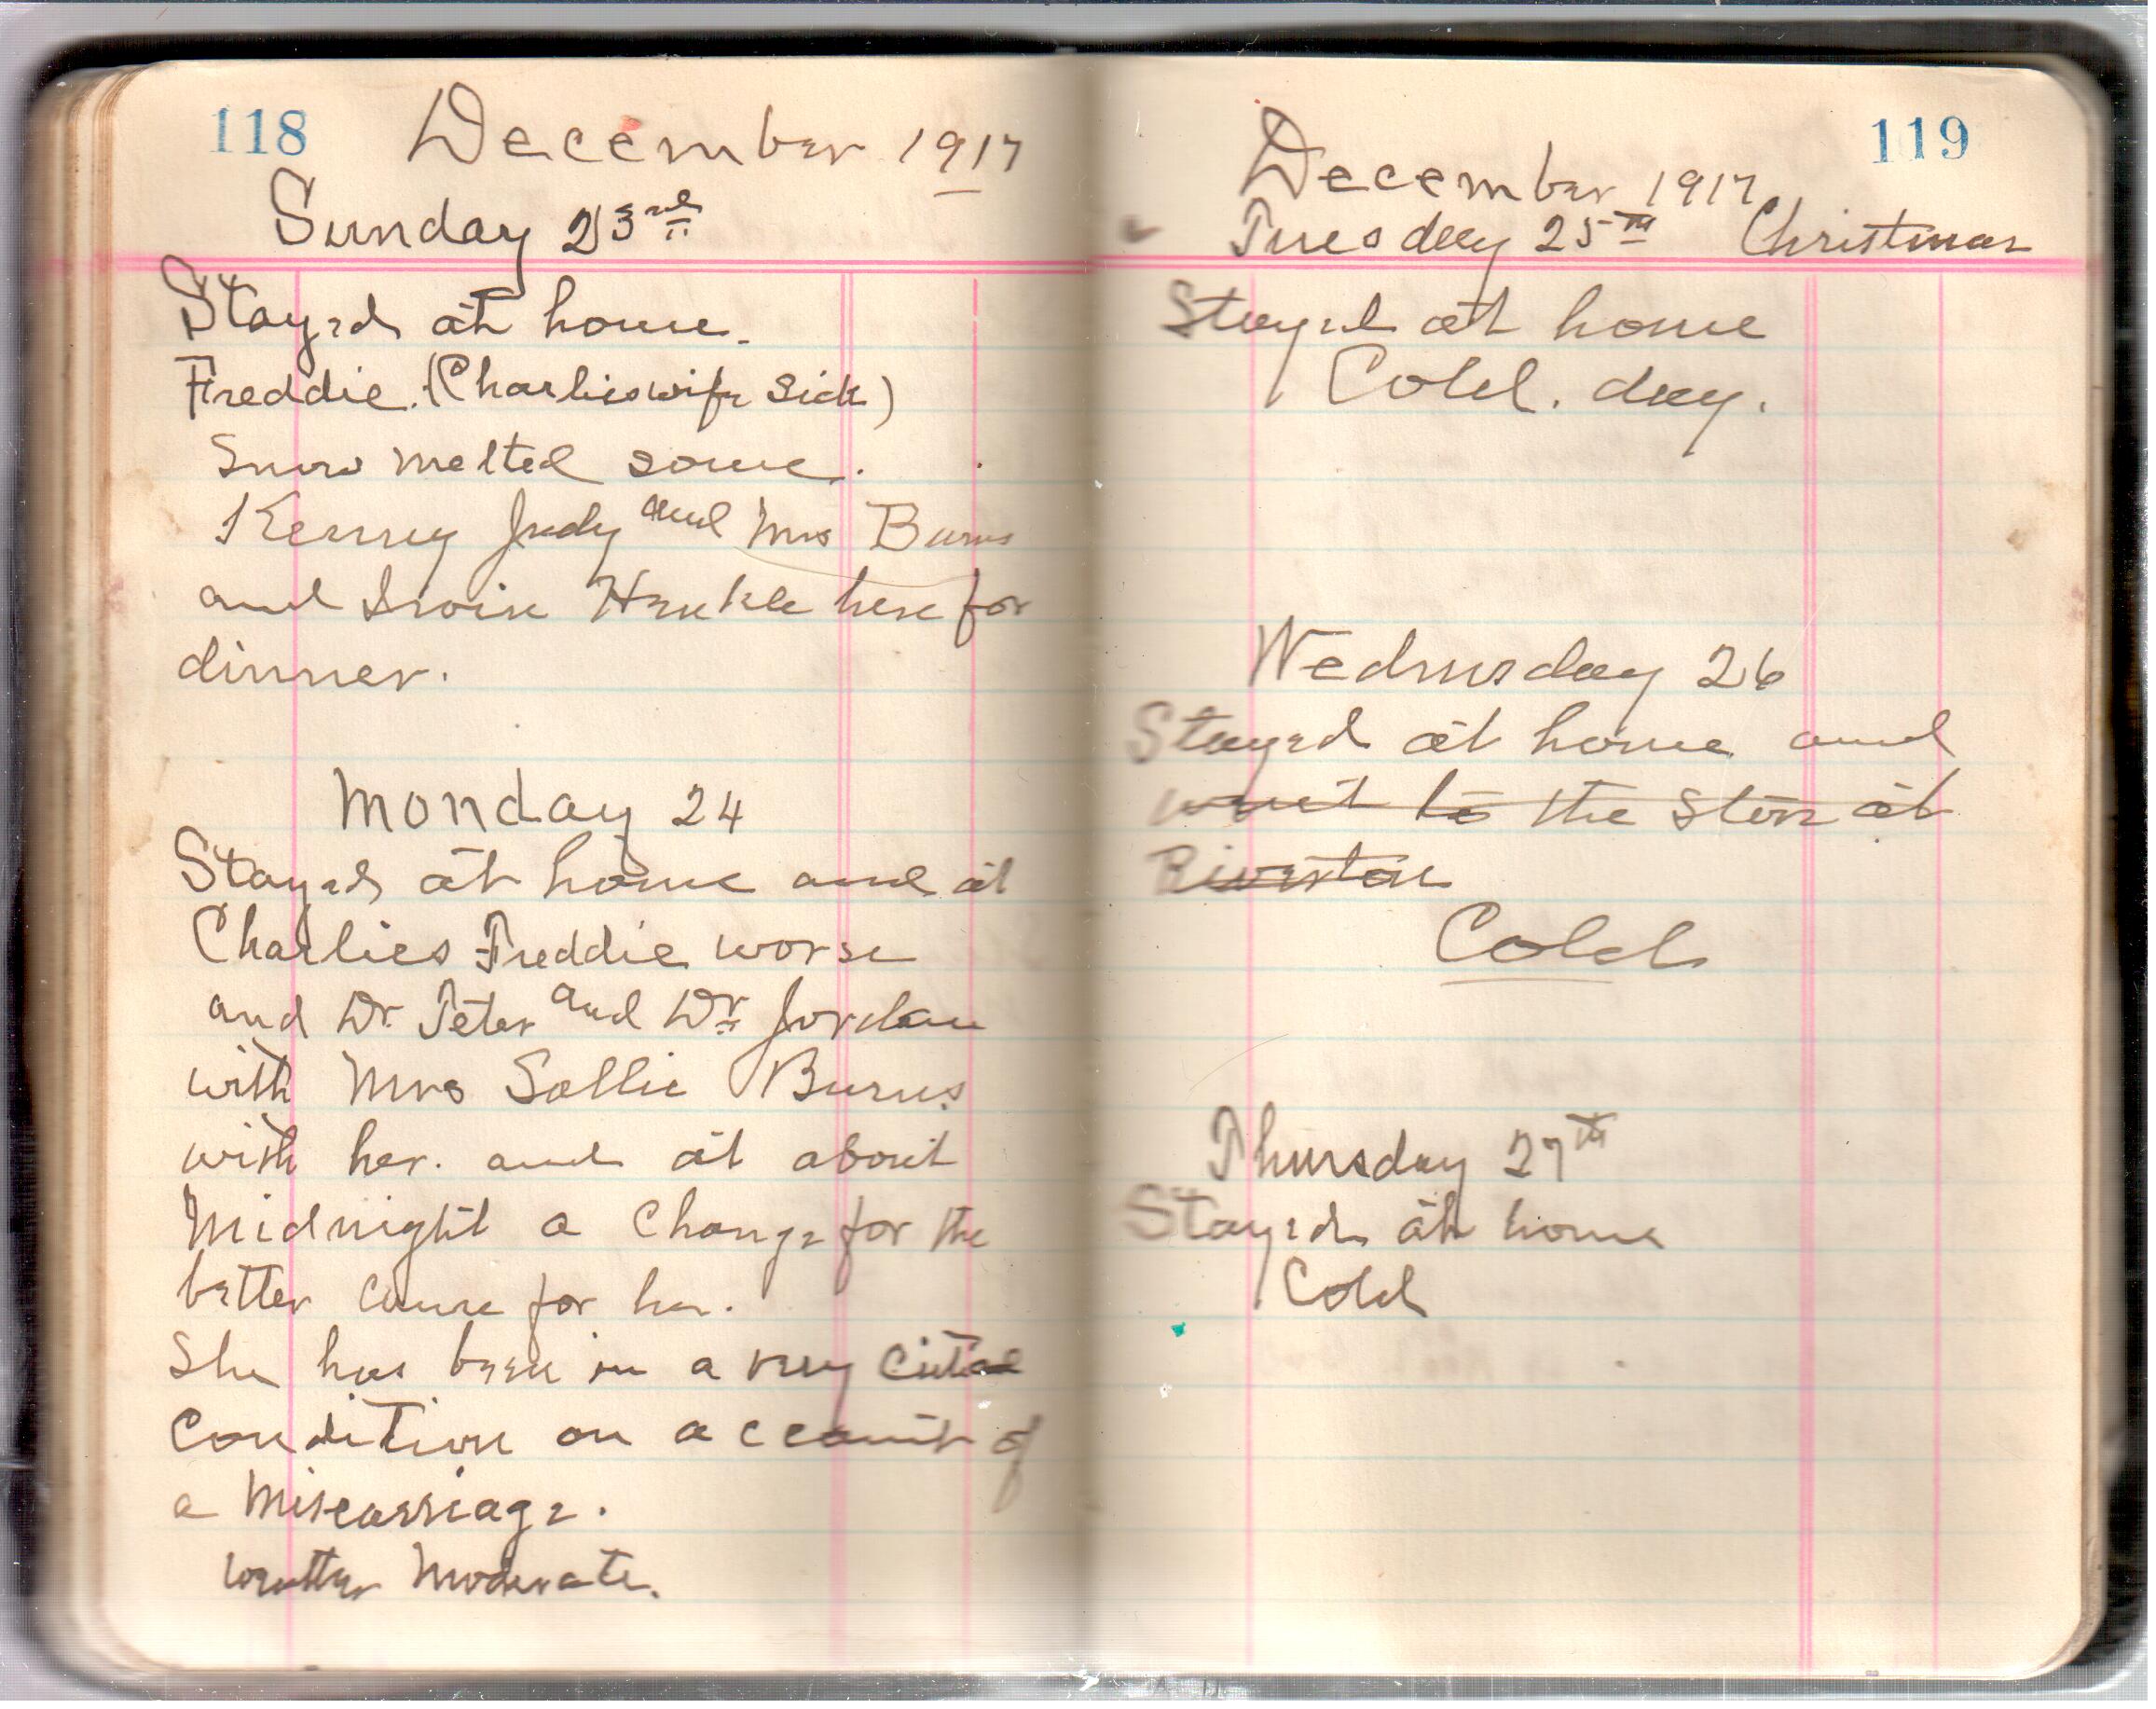 118 December 1917
Sunday 23rd
Stayed at home.
Freddie. (Charlies wife Sick)
Snow melted some.
Kenny Judy and Mrs Burns
and Irvin Henkle here for
dinner.
Monday 24
Stayed at home and at
Charlies Freddie worse
and Dr. Peter and Dr. Jordan
with Mrs Sallie Burns
with her. and at about
Midnight a Change for the
better came for her.
She has been in a very
Condition on account of
a Miscarriage.
Moderate.
119
December 1917
Tuesday 25th Christmas
Stayed at home
Cold. day.
Wednesday 26
Stayed at home and
went to the Store at
Riverton
Cold
Thursday 27th
Stayed at home
Cold